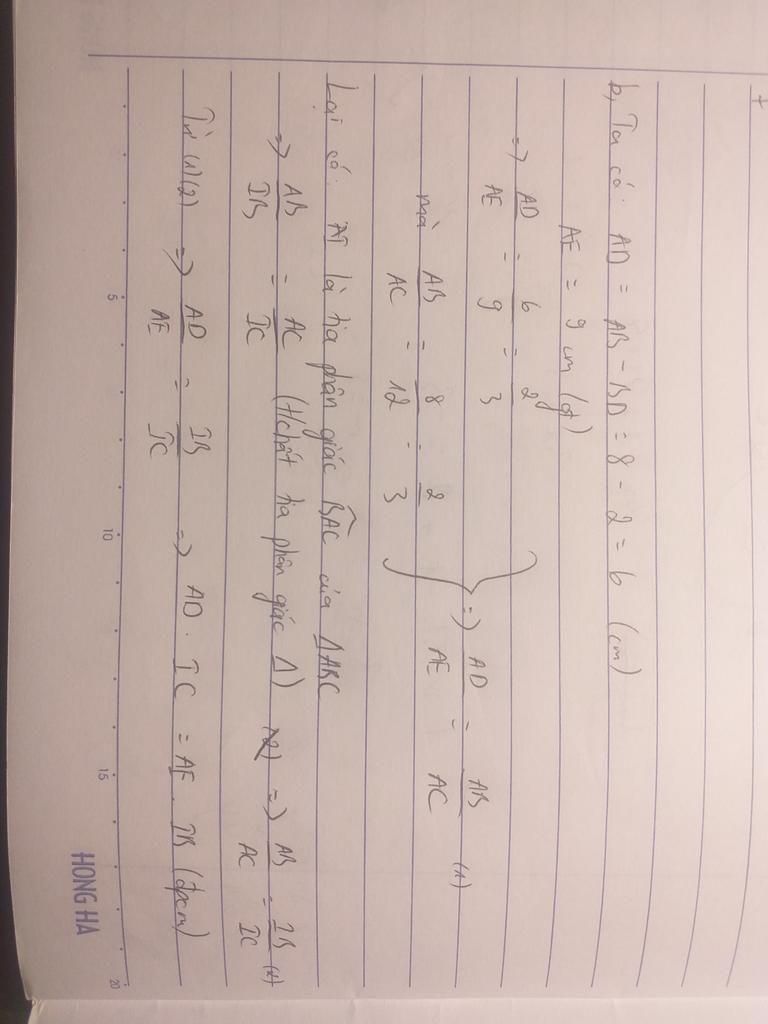 +
b, Ta có: AD = AB - BD = 8 - 2 = 6 (cm)
AE = 9 cm (gt)
=> AD/AE = 6/9 = 2/3
mà AB/AC = 8/12 = 2/3
=> AD/AE = AB/AC (1)
Lại có: AI là tia phân giác BAC của ΔABC
=> AB/IB = AC/IC (t/chất tia phân giác Δ) => AB/AC = IB/IC (2)
Từ (1)(2) => AD/AE = IB/IC => AD . IC = AE . IB (đpcm)
5 10 15 20
HONG HA